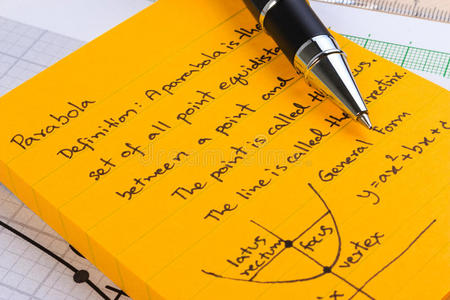 Parabola
Definition: A parabola is the
set of all point equidista
between a point and
The point is called the
The line is called the
rectrix.
General Form
y=ax²+bx+c
latus
rectum
focus
vertex